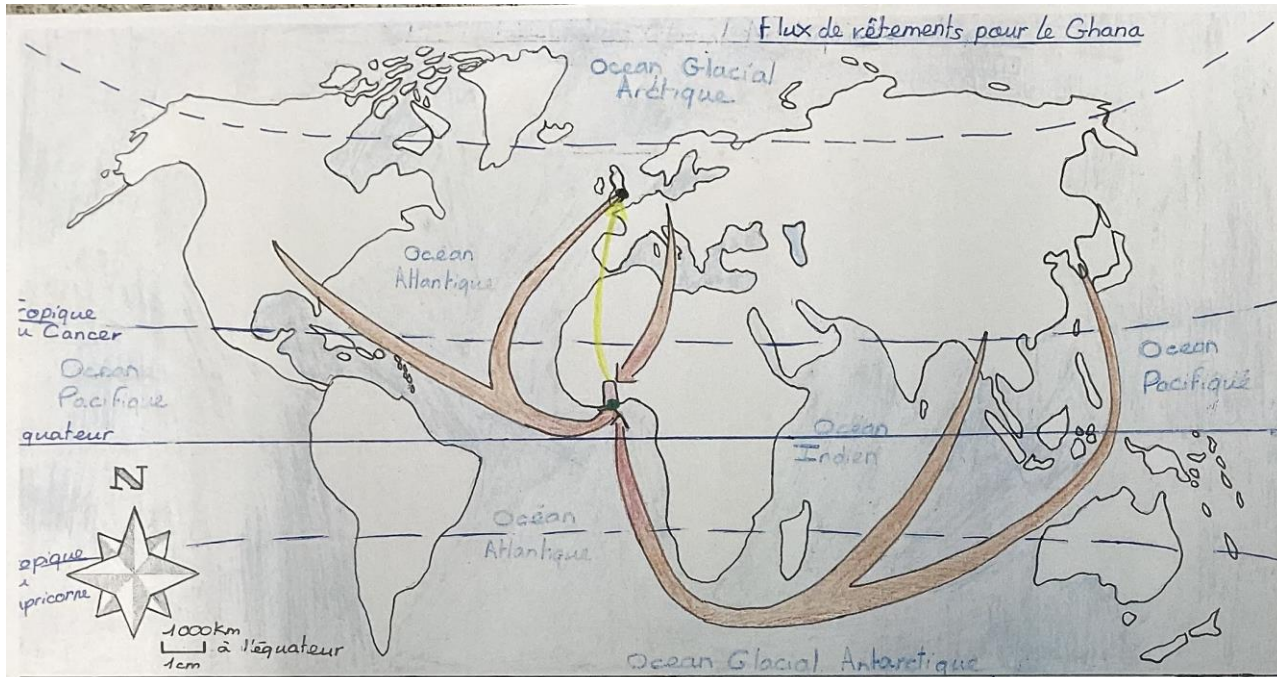 Flux de vêtements pour le Ghana
Océan Glacial
Arctique
Océan
Atlantique
Tropique
u Cancer
Océan
Pacifique
Océan
Pacifique
quateur
Océan
Indien
N
Océan
Atlantique
opique
apricorne
1000km
à l'équateur
1cm
Océan Glacial Antarctique